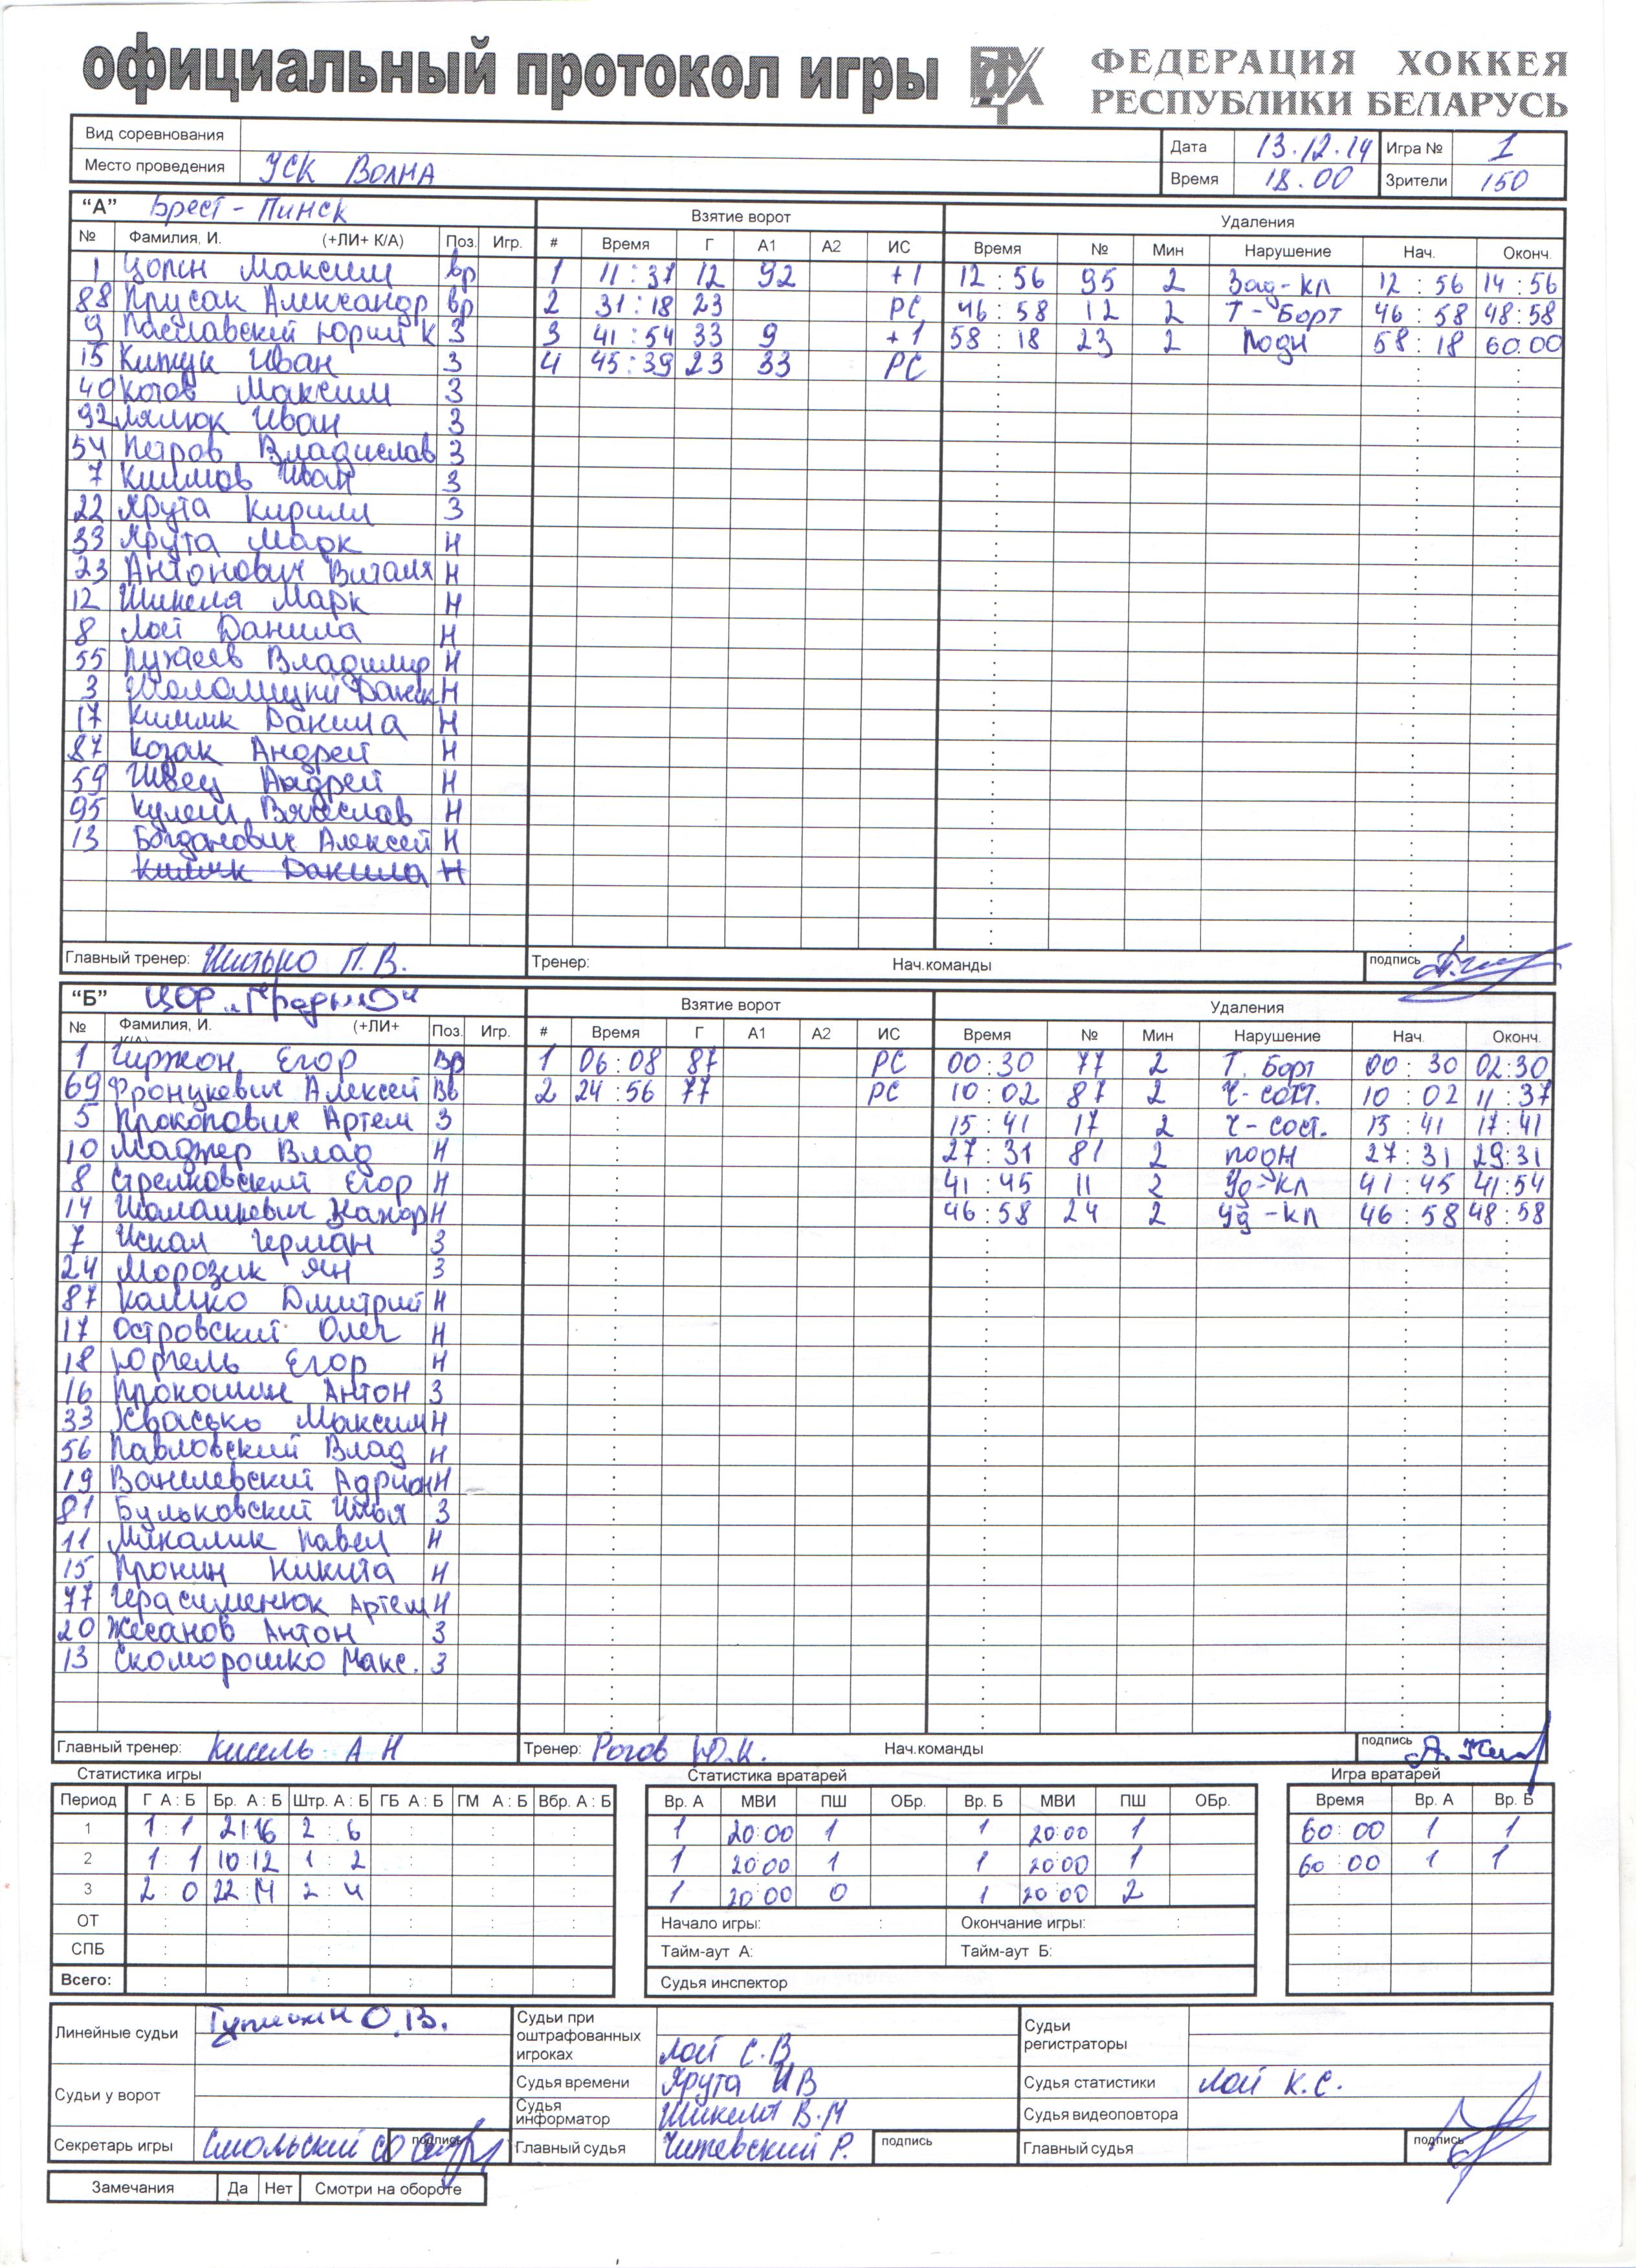 официальный протокол игры ФЕДЕРАЦИЯ ХОККЕЯ РЕСПУБЛИКИ БЕЛАРУСЬ
Вид соревнования Дата 13.12.14 Игра № 1
Место проведения УСК Волна Время 18.00 Зрители 150
"А" Брест - Пинск Взятие ворот Удаления
№ Фамилия, И. (+ЛИ+ К/А) Поз. Игр. # Время Г А1 А2 ИС Время № Мин Нарушение Нач. Оконч.
1 Максим вр 1 11:37 12 92 +1 12:56 95 2 Зад-кл 12:56 14:56
88 Прусак Александр вр 2 31:18 23 РС 46:58 12 2 Т-Борт 46:58 48:58
9 Паславский Юрий К З 3 41:54 33 9 +1 58:18 23 2 подн 58:18 60:00
15 Иван З 4 45:39 23 33 РС
40 Котов Максим З
92 Иван З
54 Петров Владислав З
7 Климов Иван З
22 Ярута Кирилл З
33 Ярута Марк Н
23 Антонович Виталя Н
12 Шикеля Марк Н
8 Лой Данила Н
55 Владимир Н
3 Н
17 Данила Н
87 Козак Андрей Н
59 Швец Андрей Н
95 Кулеш Вячеслав Н
13 Богданович Алексей Н
Данила Н
Главный тренер: П.В. Тренер: Нач.команды подпись
"Б" ЦОР Взятие ворот Удаления
№ Фамилия, И. (+ЛИ+ К/А) Поз. Игр. # Время Г А1 А2 ИС Время № Мин Нарушение Нач. Оконч.
1 Гиржон Егор Вр 1 06:08 87 РС 00:30 77 2 Т. Борт 00:30 02:30
69 Фронцкевич Алексей Вв 2 24:56 77 РС 10:02 87 2 Ч-сост. 10:02 11:37
5 Прокопович Артем З 15:41 17 2 Ч-сост. 15:41 17:41
10 Маджер Влад Н 27:31 81 2 подн 27:31 29:31
8 Стрелковский Егор Н 41:45 11 2 Уд-кл 41:45 41:54
14 Н 46:58 24 2 уд-кл 46:58 48:58
7 Герман З
24 Морозик Ян З
87 Калько Дмитрий Н
17 Островский Олег Н
18 Юргель Егор Н
16 Прокошин Антон З
33 Квасько Максим Н
56 Павловский Влад Н
19 Адриан Н
81 Бульковский Илья З
11 Михалик Павел Н
15 Пронин Никита Н
77 Герасименюк Артем Н
20 Антон З
13 Скоморошко Макс. З
Главный тренер: Кисель А Н Тренер: Рогов Ю.К. Нач.команды подпись
Статистика игры Статистика вратарей Игра вратарей
Период Г А : Б Бр. А : Б Штр. А : Б ГБ А : Б ГМ А : Б Вбр. А : Б Вр. А МВИ ПШ ОБр. Вр. Б МВИ ПШ ОБр. Время Вр. А Вр. Б
1 1:1 21:16 2:6 1 20:00 1 1 20:00 1 60:00 1 1
2 1:1 10:12 1:2 1 20:00 1 1 20:00 1 60:00 1 1
3 2:0 22:14 2:4 1 20:00 0 1 20:00 2
ОТ Начало игры: Окончание игры:
СПБ Тайм-аут А: Тайм-аут Б:
Всего: Судья инспектор
Линейные судьи О.В. Судьи при оштрафованных игроках Лой С.В Судьи регистраторы
Судьи у ворот Судья времени Ярута И В Судья статистики Лой К.С.
Судья информатор В.М Судья видеоповтора
Секретарь игры Смольский СО подпись Главный судья Чижевский Р. подпись Главный судья подпись
Замечания Да Нет Смотри на обороте